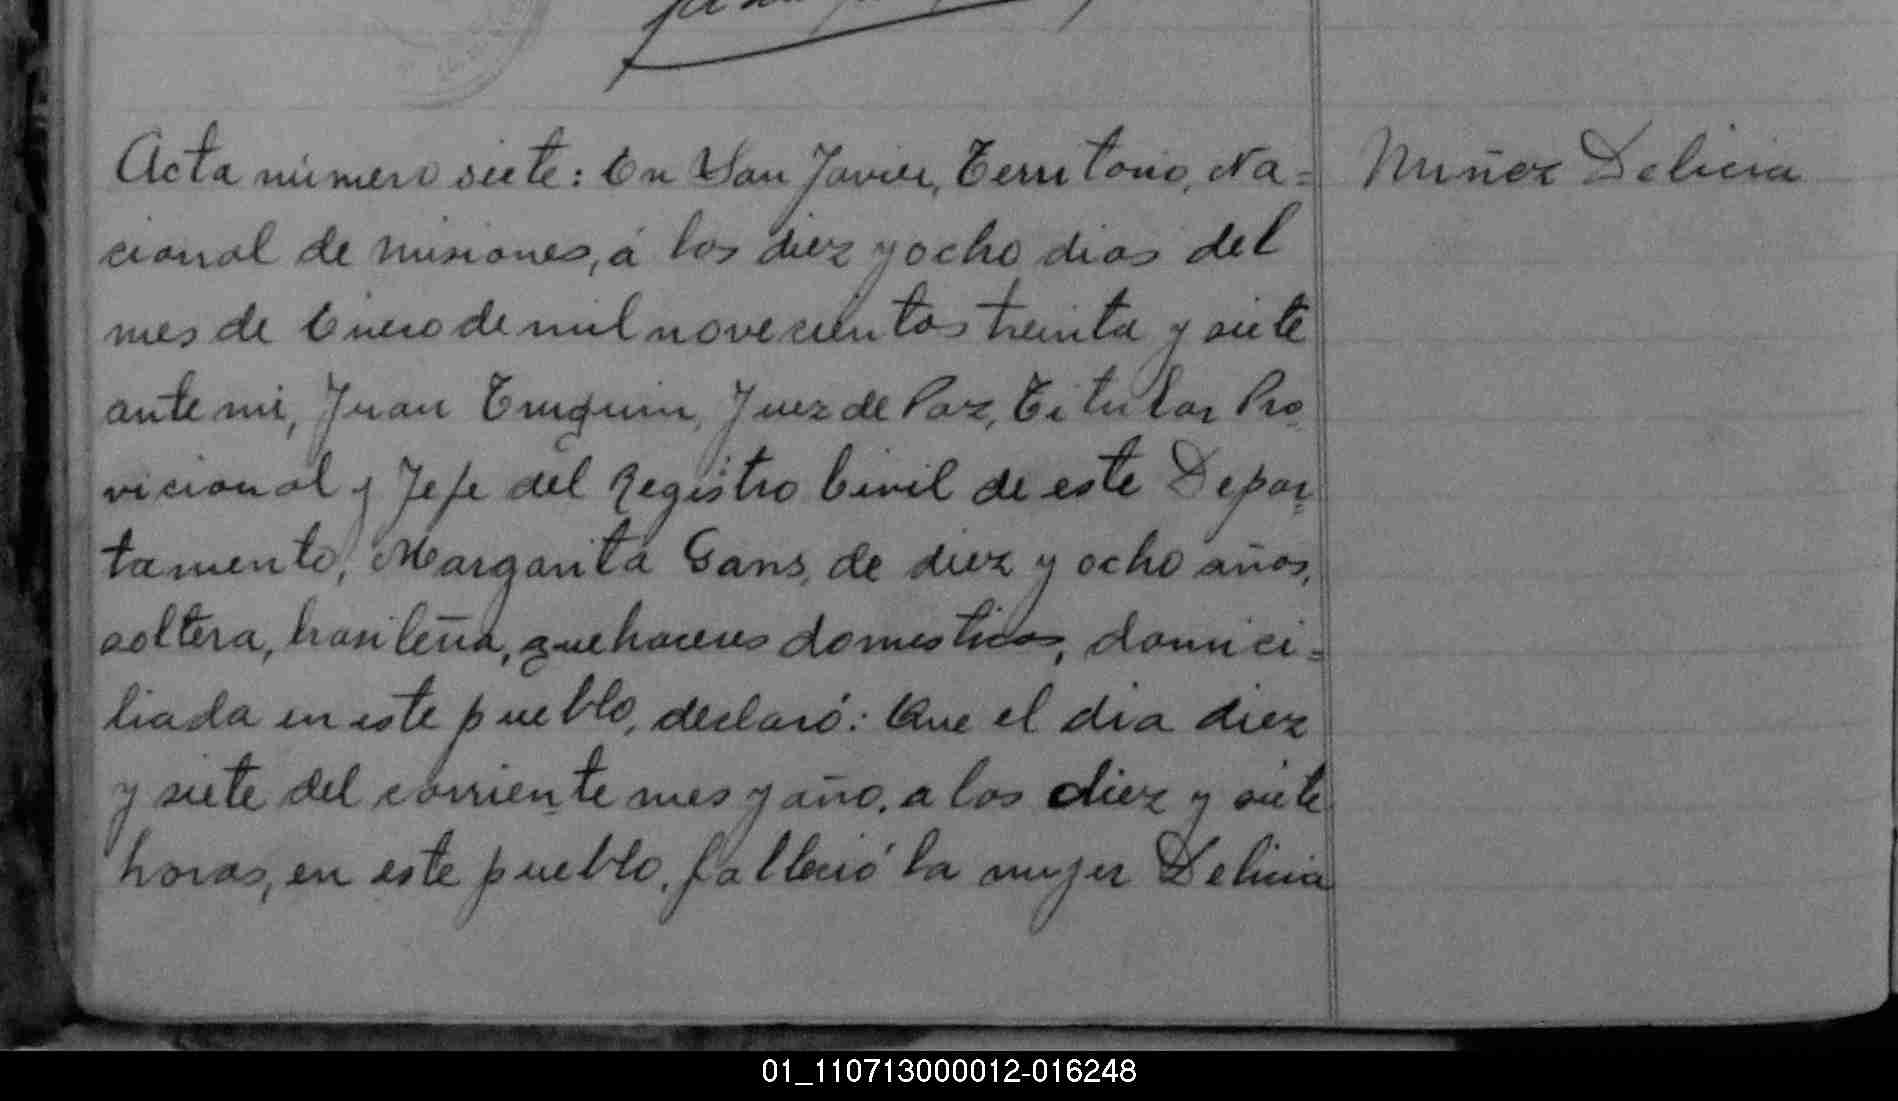 Acta número siete: En San Javier, Territorio, Na=
cional de Misiones, á los diez y ocho dias del
mes de Enero de mil novecientos treinta y siete
ante mi, Juan Truquin, Juez de Paz, Titular Pro
vicional y Jefe del Registro Civil de este Depar
tamento, Margarita Gans, de diez y ocho años,
soltera, brasileña, quehaceres domesticos, domici=
liada en este pueblo, declaró: Que el dia diez
y siete del corriente mes y año, a las diez y siete
horas, en este pueblo, falleció la mujer Delicia
Muñoz Delicia
01_110713000012-016248